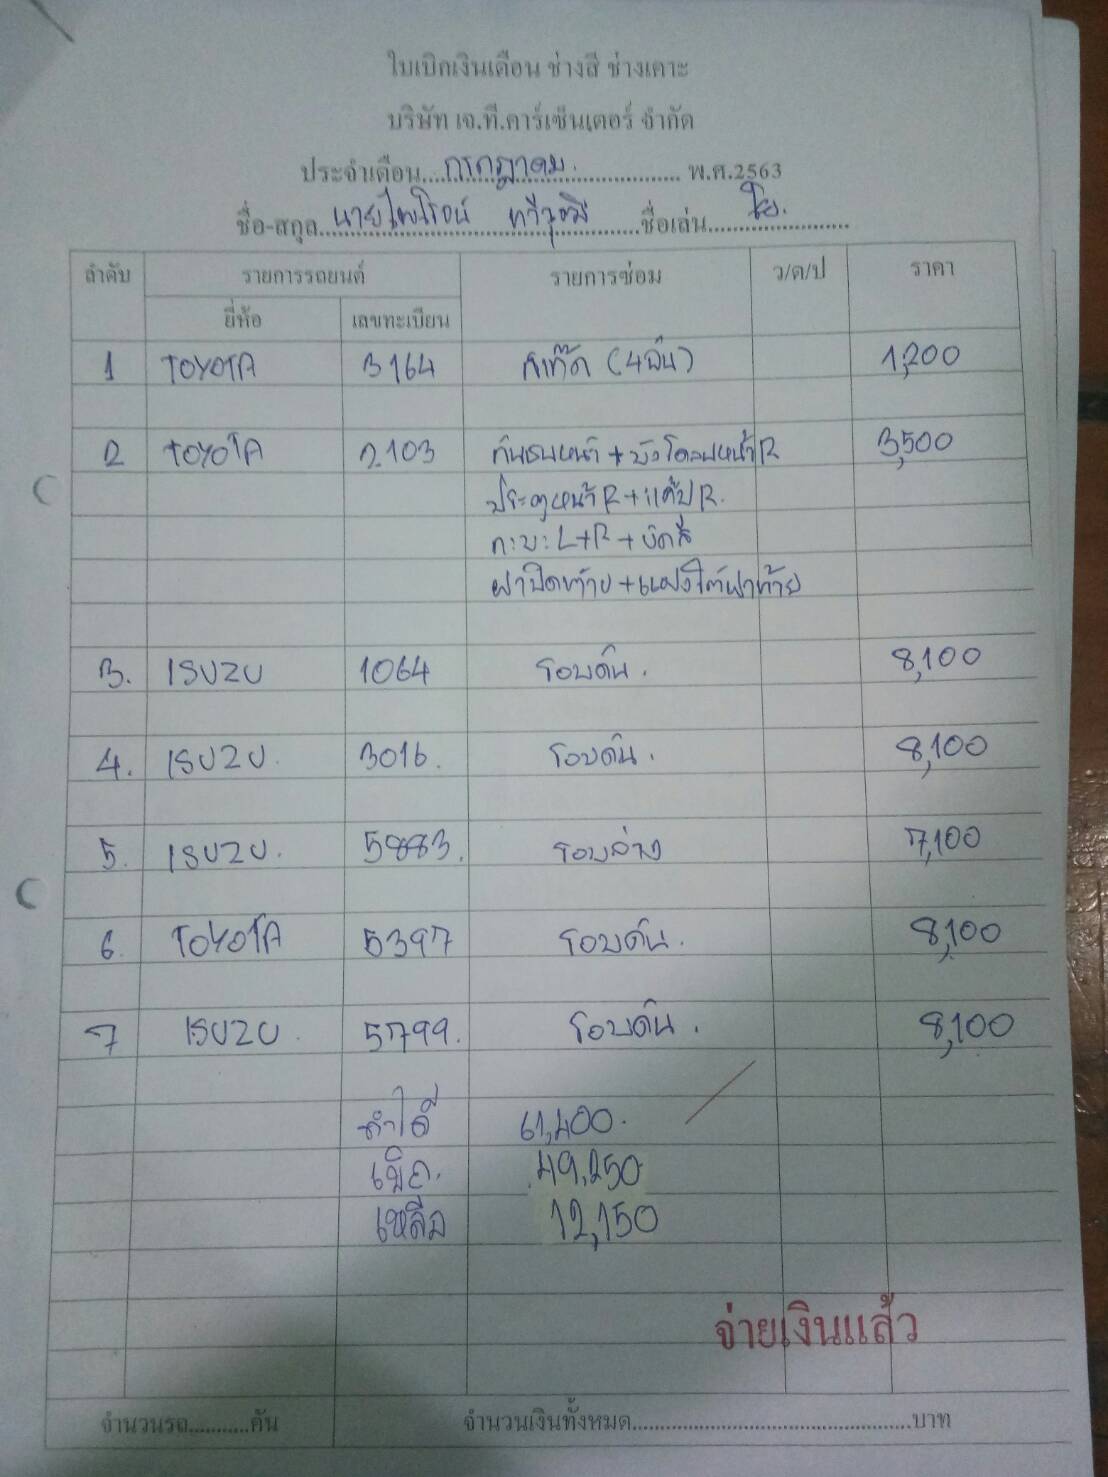 ใบเบิกเงินเดือน ช่างสี ช่างเคาะ
บริษัท เจ.ที.คาร์เซ็นเตอร์ จำกัด
ประจำเดือน....กรกฎาคม............ พ.ศ.2563
ชื่อ-สกุล...นายไพโรจน์.......ชื่อเล่น...โย....
ลำดับ รายการรถยนต์ รายการซ่อม ว/ด/ป ราคา
ยี่ห้อ เลขทะเบียน
1 TOYOTA 3164 (4ชิ้น) 1,200
2 TOYOTA 2103 กันชนหน้า + บังโคลนหน้า R 3,500
ประตูหน้า R + แค็ป R.
กะบะ L+R + ขัดสี
ฝาปิดท้าย + แผงใต้ฝาท้าย
3. ISUZU 1064 รอบคัน. 8,100
4. ISUZU. 3016. รอบคัน. 8,100
5. ISUZU. 5883. รอบล่าง 7,100
6. TOYOTA 5397 รอบคัน. 8,100
7 ISUZU. 5799. รอบคัน. 8,100
ทำได้ 61,400.
เบิก. 49,250
เหลือ 12,150
จ่ายเงินแล้ว
จำนวนรถ...........คัน จำนวนเงินทั้งหมด..................................................บาท